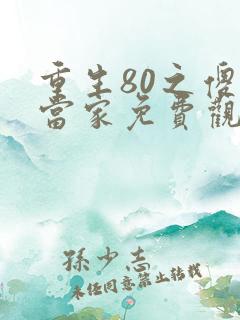 重生80之傻
當家免費觀
孫少志
未经同意禁止转载